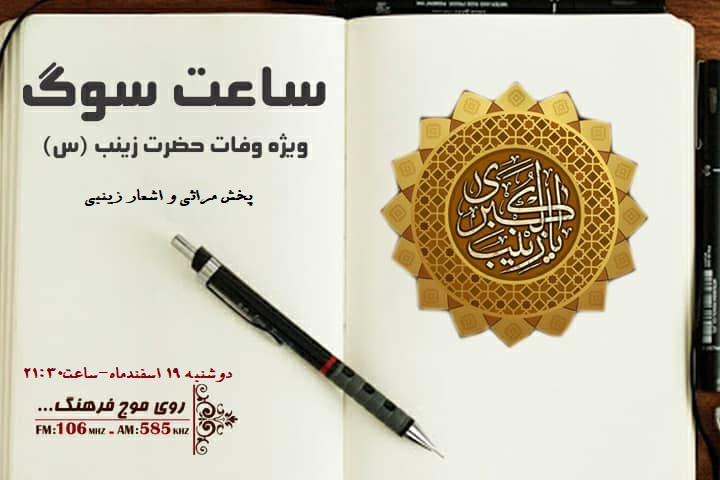 ساعت سوگ
ویژه وفات حضرت زینب (س)
پخش مراثی و اشعار زینبی
یا زینب الکبری
دوشنبه ۱۹ اسفندماه-ساعت۲۱:۳۰
روی موج فرهنگ...
FM:106 MHZ - AM:585 KHZ